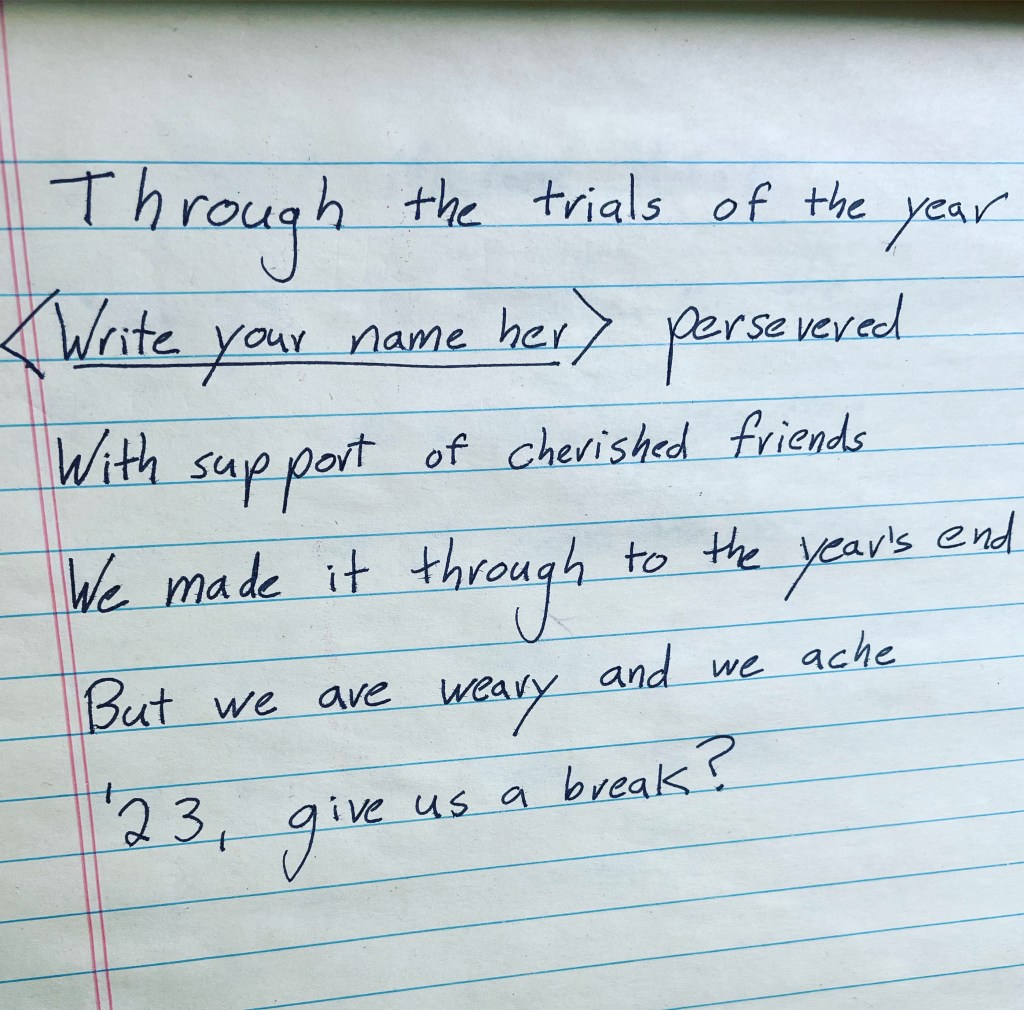 Through the trials of the year
<Write your name her> persevered
With support of cherished friends
We made it through to the year's end
But we are weary and we ache
'23, give us a break?